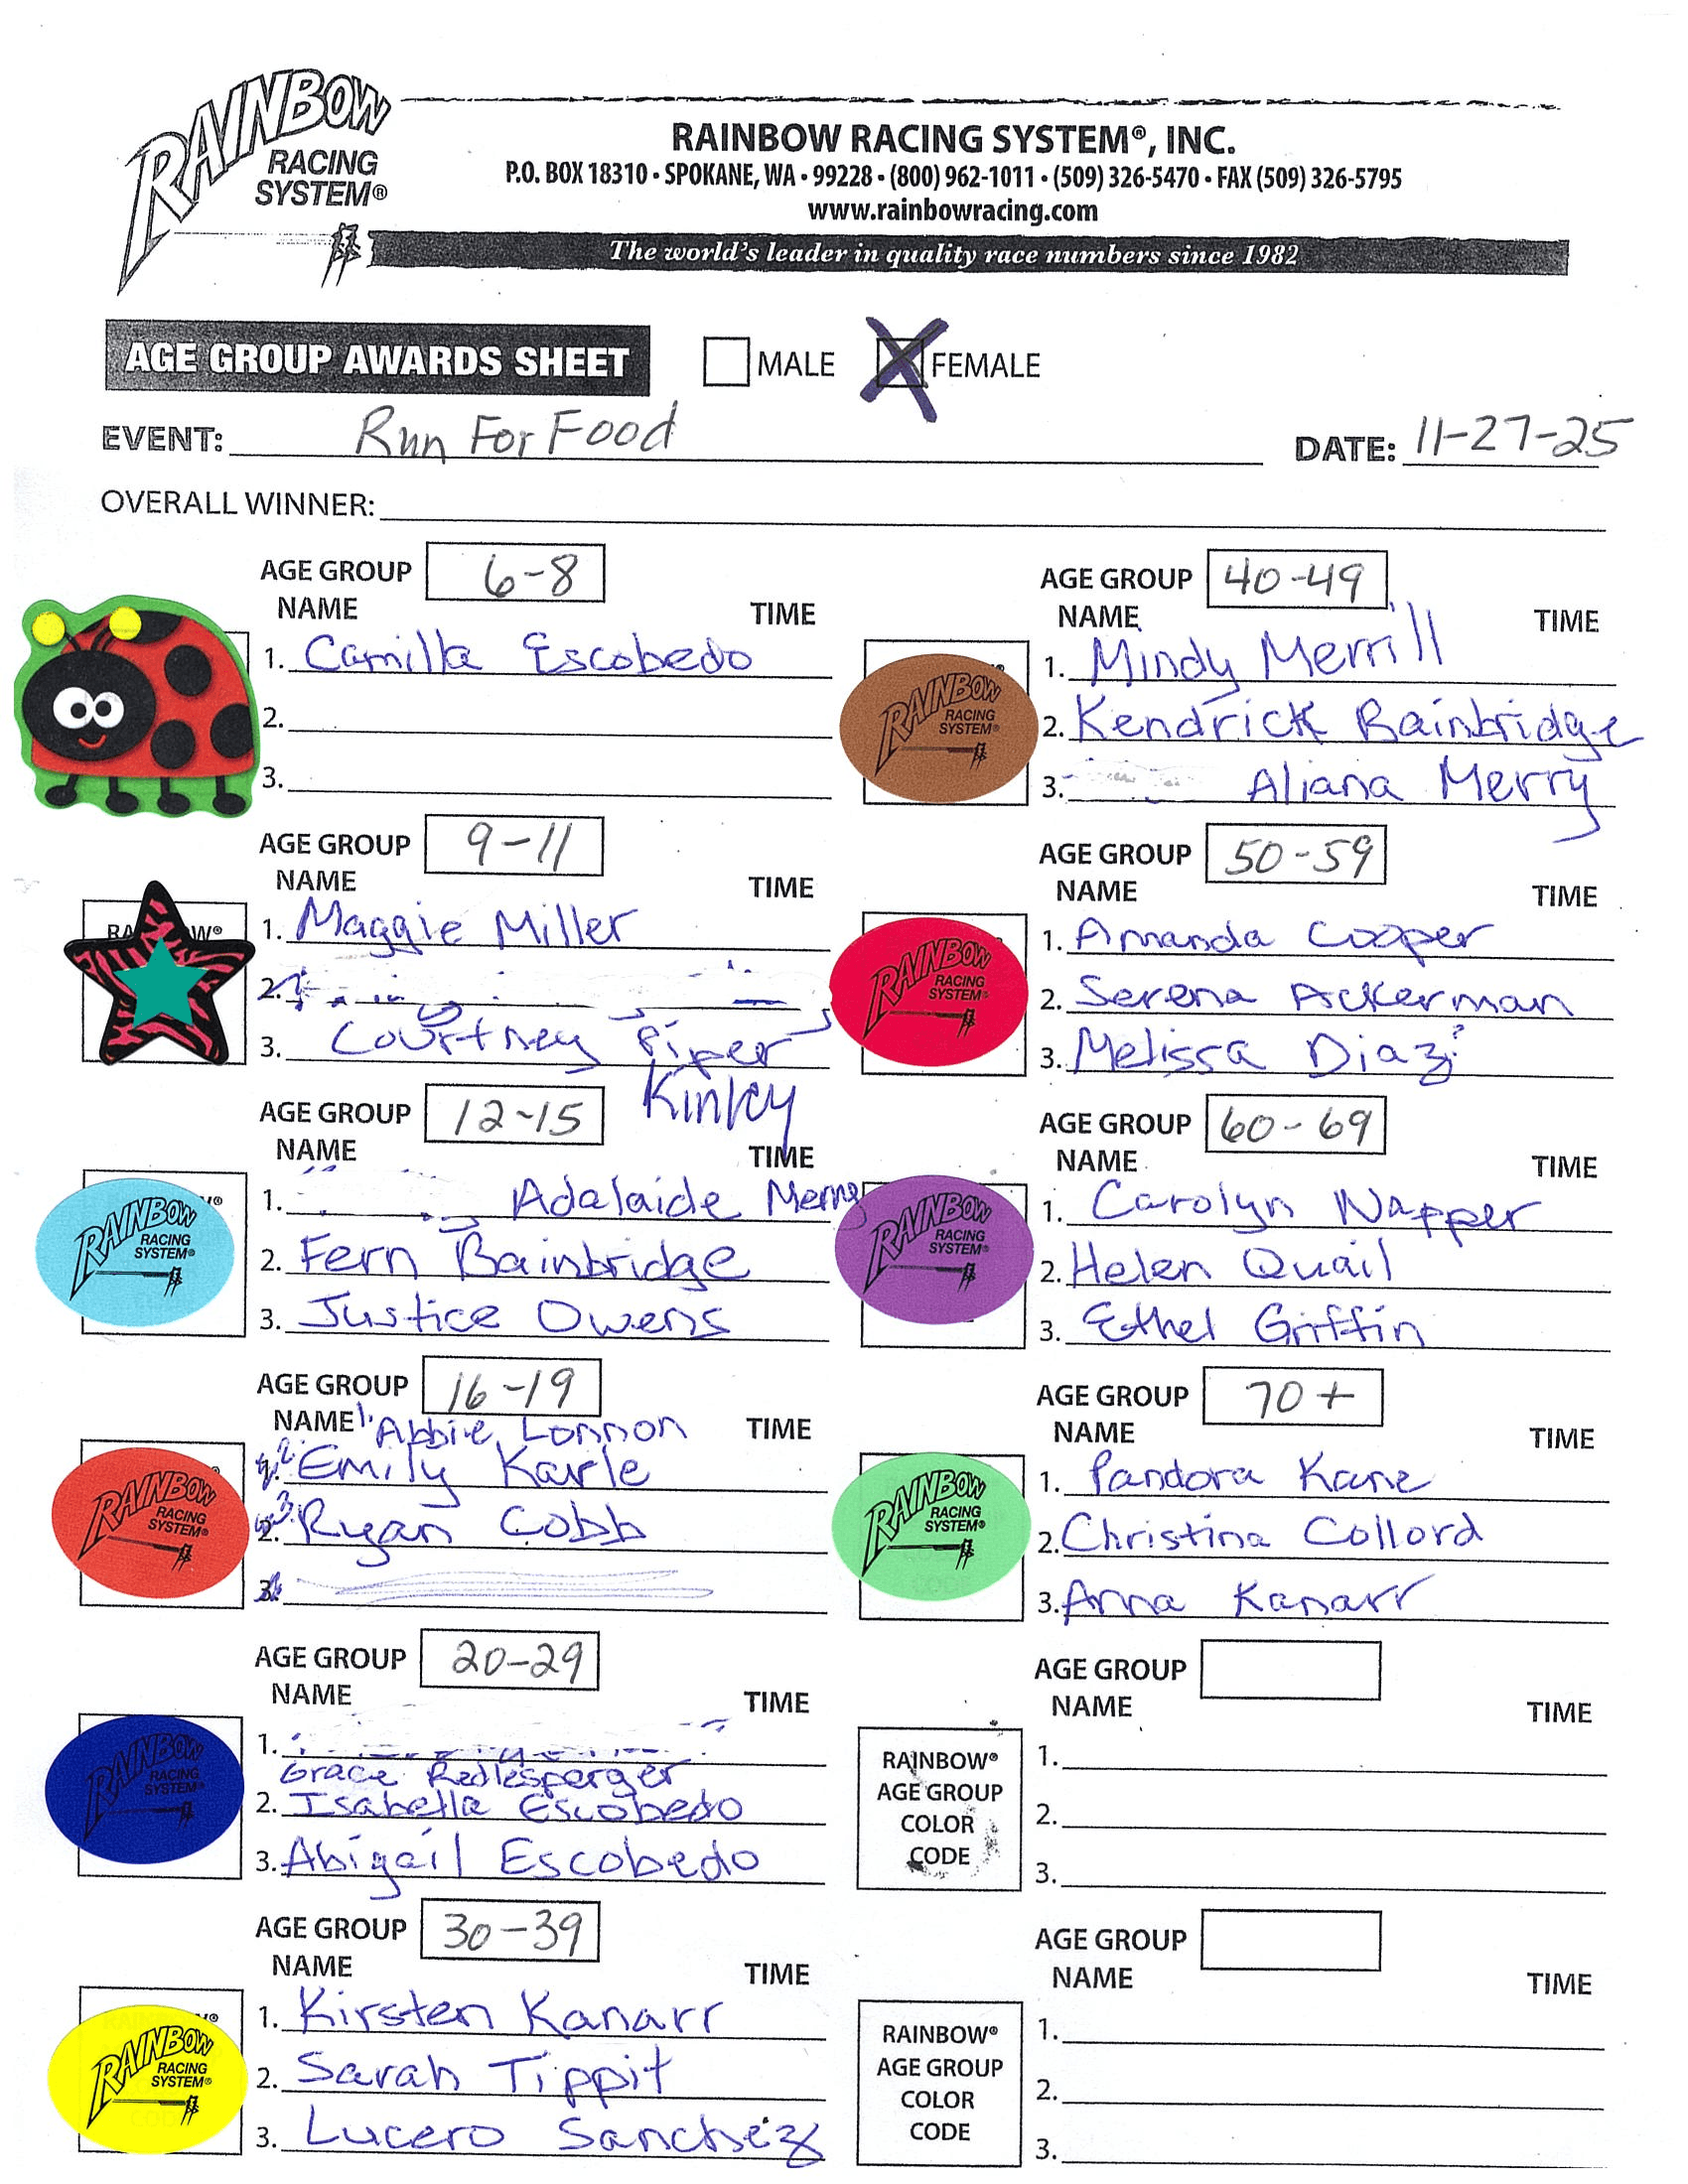 RAINBOW
RACING
SYSTEM®
RAINBOW RACING SYSTEM®, INC.
P.O. BOX 18310 • SPOKANE, WA • 99228 • (800) 962-1011 • (509) 326-5470 • FAX (509) 326-5795
www.rainbowracing.com
The world's leader in quality race numbers since 1982
AGE GROUP AWARDS SHEET
MALE
X FEMALE
EVENT: Run For Food
DATE: 11-27-25
OVERALL WINNER:
AGE GROUP 6-8
NAME TIME
1. Camilla Escobedo
2.
3.
AGE GROUP 9-11
NAME TIME
RA W®
1. Maggie Miller
2.
3. Courtney Piper
Kinley
AGE GROUP 12-15
NAME TIME
RAINBOW
RACING
SYSTEM®
1. Adalaide Merry
2. Fern Bainbridge
3. Justice Owens
AGE GROUP 16-19
NAME TIME
RAINBOW
RACING
SYSTEM®
1. Abbie Lonnon
2. Emily Karle
3. Ryan Cobb
AGE GROUP 20-29
NAME TIME
RAINBOW
RACING
SYSTEM®
1.
Grace Redlesperger
2. Isabella Escobedo
3. Abigail Escobedo
AGE GROUP 30-39
NAME TIME
RAINBOW
RACING
SYSTEM®
1. Kirsten Kanarr
2. Sarah Tippit
3. Lucero Sanchez
AGE GROUP 40-49
NAME TIME
RAINBOW
RACING
SYSTEM®
1. Mindy Merrill
2. Kendrick Bainbridge
3. Aliana Merry
AGE GROUP 50-59
NAME TIME
RAINBOW
RACING
SYSTEM®
1. Amanda Cooper
2. Serena Ackerman
3. Melissa Diaz
AGE GROUP 60-69
NAME TIME
RAINBOW
RACING
SYSTEM®
1. Carolyn Napper
2. Helen Quail
3. Ethel Griffin
AGE GROUP 70+
NAME TIME
RAINBOW
RACING
SYSTEM®
1. Pandora Kane
2. Christina Collord
3. Anna Kanarr
AGE GROUP
NAME TIME
RAINBOW®
AGE GROUP
COLOR
CODE
1.
2.
3.
AGE GROUP
NAME TIME
RAINBOW®
AGE GROUP
COLOR
CODE
1.
2.
3.